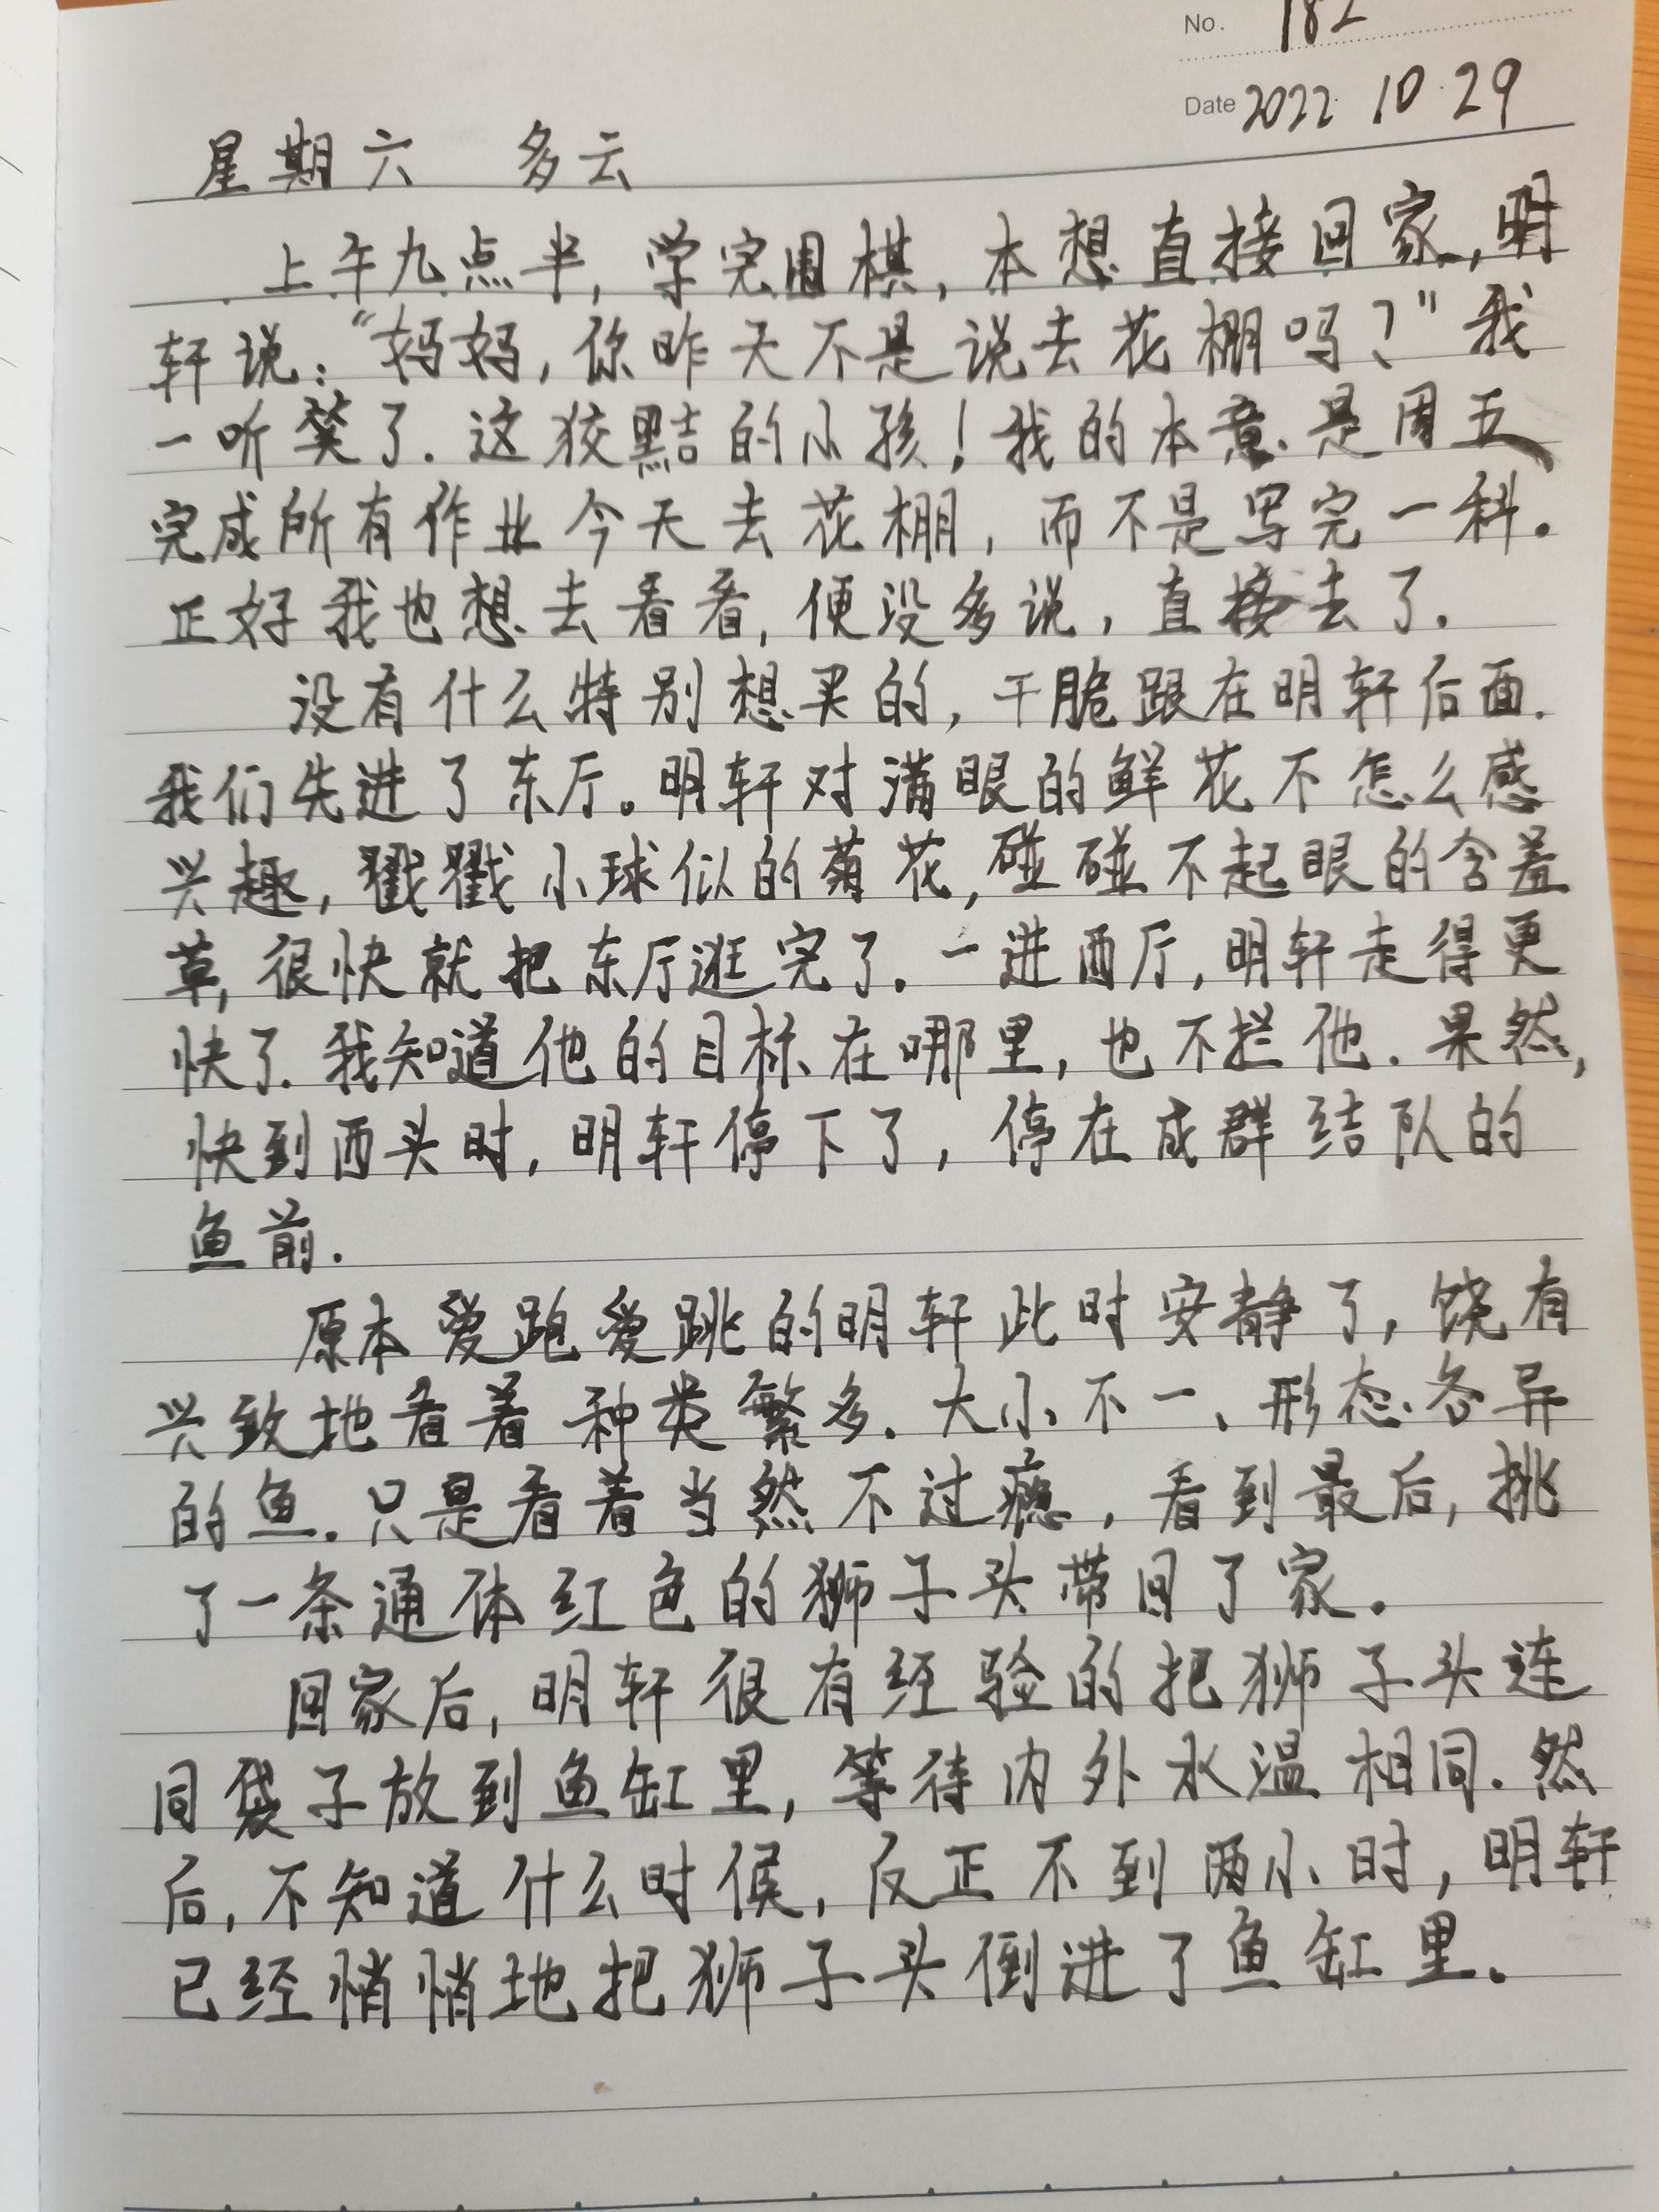 No. 182
Date 2022 10 29
星期六 多云
上午九点半,学完围棋,本想直接回家,明
轩说:“妈妈,你昨天不是说去花棚吗?”我
一听笑了.这狡黠的小孩!我的本意是周五
完成所有作业今天去花棚,而不是写完一科。
正好我也想去看看,便没多说,直接去了.
没有什么特别想买的,干脆跟在明轩后面.
我们先进了东厅。明轩对满眼的鲜花不怎么感
兴趣,戳戳小球似的菊花,碰碰不起眼的含羞
草,很快就把东厅逛完了.一进西厅,明轩走得更
快了.我知道他的目标在哪里,也不拦他.果然,
快到西头时,明轩停下了,停在成群结队的
鱼前.
原本爱跑爱跳的明轩此时安静了,饶有
兴致地看着种类繁多、大小不一、形态各异
的鱼.只是看着当然不过瘾,看到最后,挑
了一条通体红色的狮子头带回了家.
回家后,明轩很有经验的把狮子头连
同袋子放到鱼缸里,等待内外水温相同.然
后,不知道什么时候,反正不到两小时,明轩
已经悄悄地把狮子头倒进了鱼缸里。